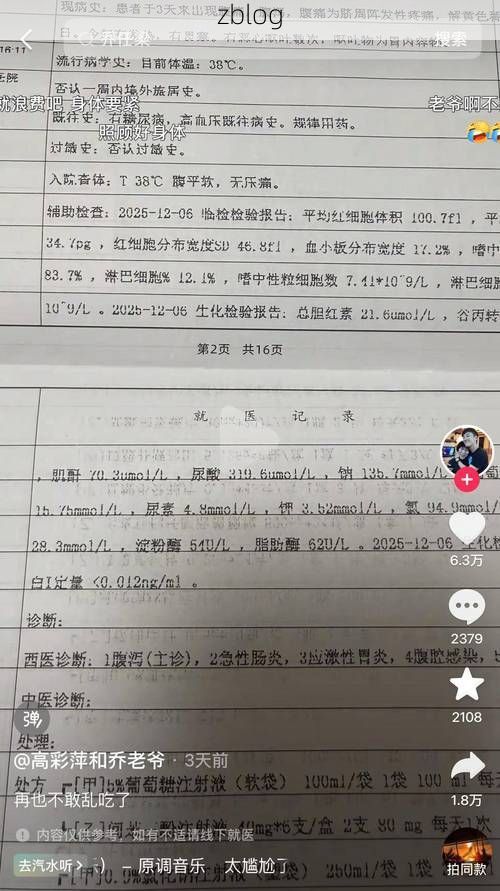 zblog
现病史：患者于3天来出现
搜索
16:11
流行病学史：目前体温：38℃。
医院
否认一周内境外旅居史。
就浪费吧 身体要紧
老爷啊不
既往史：有糖尿病，高血压既往病史。规律用药。
照顾好身体
过敏史：否认过敏史。
入院查体：T 38℃ 腹平软，无压痛。
辅助检查：2025-12-06 临检检验报告：平均红细胞体积 100.7fl，平
34.7pg，红细胞分布宽度SD 46.8fl，血小板分布宽度 17.2%，嗜中
83.7%，淋巴细胞% 12.1%，嗜中性粒细胞数 7.41*10^9/L，淋巴细
10^9/L。2025-12-06 生化检验报告：总胆红素 21.6umol/L，谷丙转
第2页 共16页
就 医 记 录
，肌酐 70.3umol/L，尿酸 319.6umol/L，钠 135.7mmol/L，葡萄
15.75mmol/L，尿素 4.8mmol/L，钾 3.52mmol/L，氯 94.9mmol/
28.3mmol/L，淀粉酶 54U/L，脂肪酶 62U/L。2025-12-06 生化检
6.3万
白I定量 <0.012ng/ml。
诊断：
2379
西医诊断：1腹泻(主诊)，2急性肠炎，3应激性胃炎，4腹腔感染，5
中医诊断：
2108
弹
处理：
@高彩萍和乔老爷 · 3天前
处方 ┏[甲]5%葡萄糖注射液（软袋） 100ml/袋 1袋 100 ml 每天
再也不敢乱吃了
1.8万
注射液 40mg*6支/盒 2支 80 mg 每天1次
内容仅供参考，如有不适请线下就医
去汽水听 〉 ） - 原调音乐 太尴尬了
拍同款
[甲]0.9%氯化钠注射液 250ml/袋 1袋